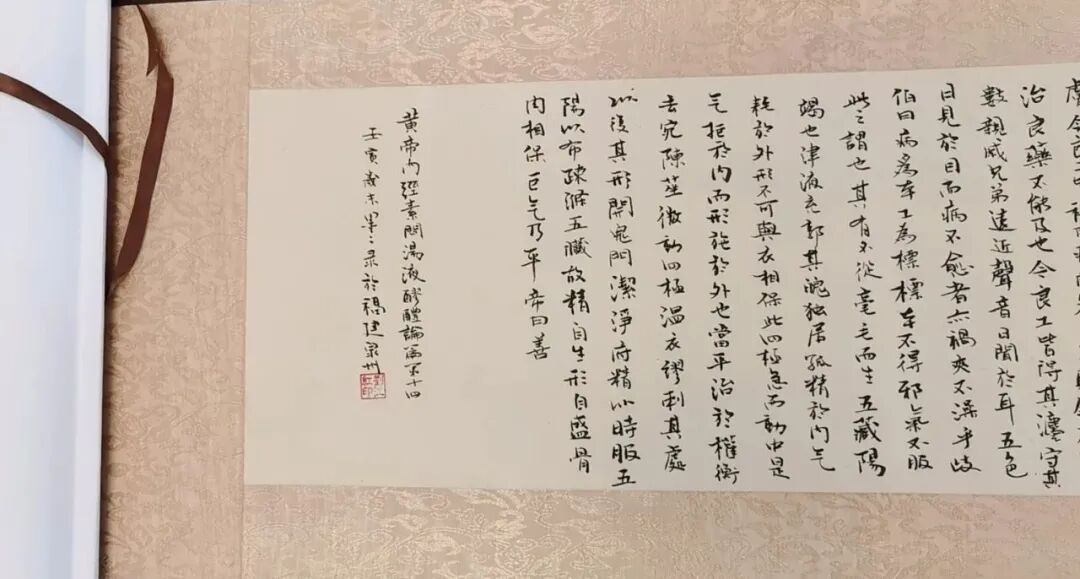 治良藥不能及也今良工皆得其灋守其
數親戚兄弟遠近聲音日聞於耳五色
日見於目而病不愈者亦不乎岐
伯曰病爲本工為標標本不得邪氣不服
此之謂也其有不從毫毛而生五藏陽
竭也津液充郭其魄独居孤精於内气
耗於外形不可與衣相保此四極急而動中是
气拒於内而形施於外也當平治於權衡
去宛陳莝微動四極温衣繆刺其處
以復其形開鬼門潔淨府精以時服五
陽以布疎滌五臟故精自生形自盛骨
肉相保巨气乃平帝曰善
黄帝内經素問湯液醪醴論篇第十四
壬寅歲末墨之录於福建泉州